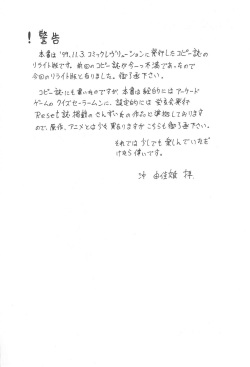 ！警告
本書は'99.11.3.コミックレヴォリューションに発行したコピー誌の
リライト版です。前回のコピー誌が今一つ不満であったので
今回のリライト版と有りました。御了承下さい。
コピー誌にも書いたのですが、本書は絵的にはアーケード
ゲームのクイズセーラームンに、設定的には
Reset誌掲載の作品に準拠しております
ので、原作、アニメとは少々異なりますがこちらも御了承下さい。
それでは少しでも楽しんでいただ
ければ幸いです。
沖 由佳雄 拝